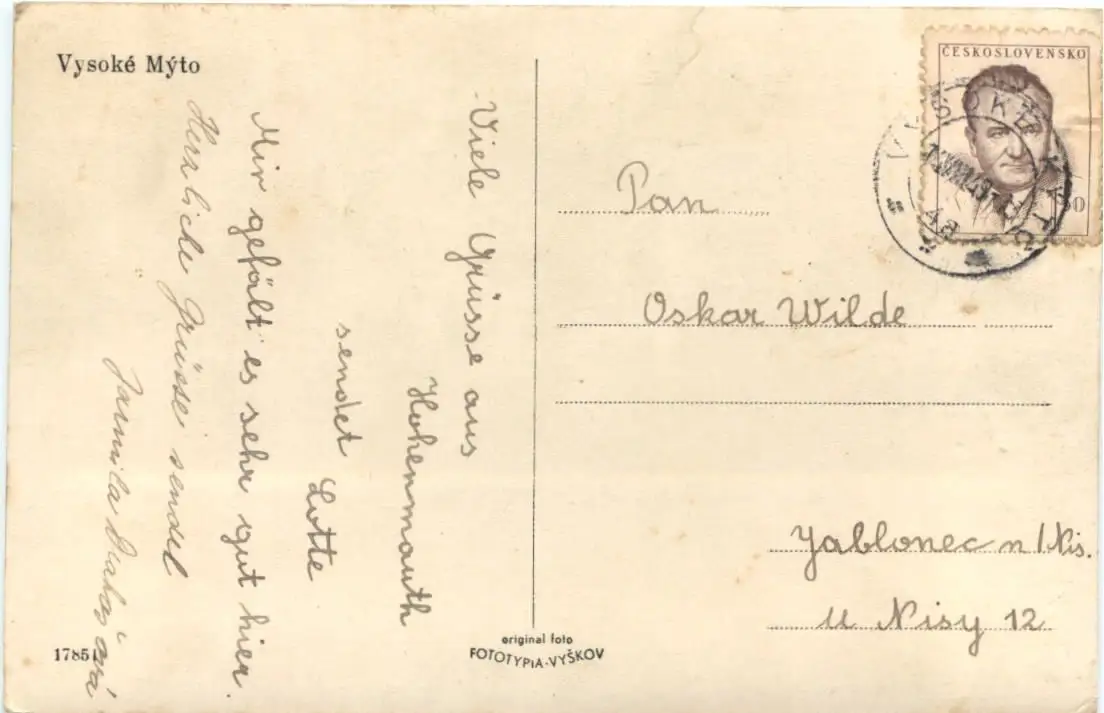 Vysoké Mýto
Viele Grüsse aus
Hohenmauth
sendet
Lotte
Mir gefält es sehr gut hier.
Herzliche Grüsse sendet
Jarmila
17851
original foto
FOTOTYPIA-VYŠKOV
ČESKOSLOVENSKO
VYSOKÉ MÝTO
Pan
Oskar Wilde
Jablonec n/Nis.
U Nisy 12